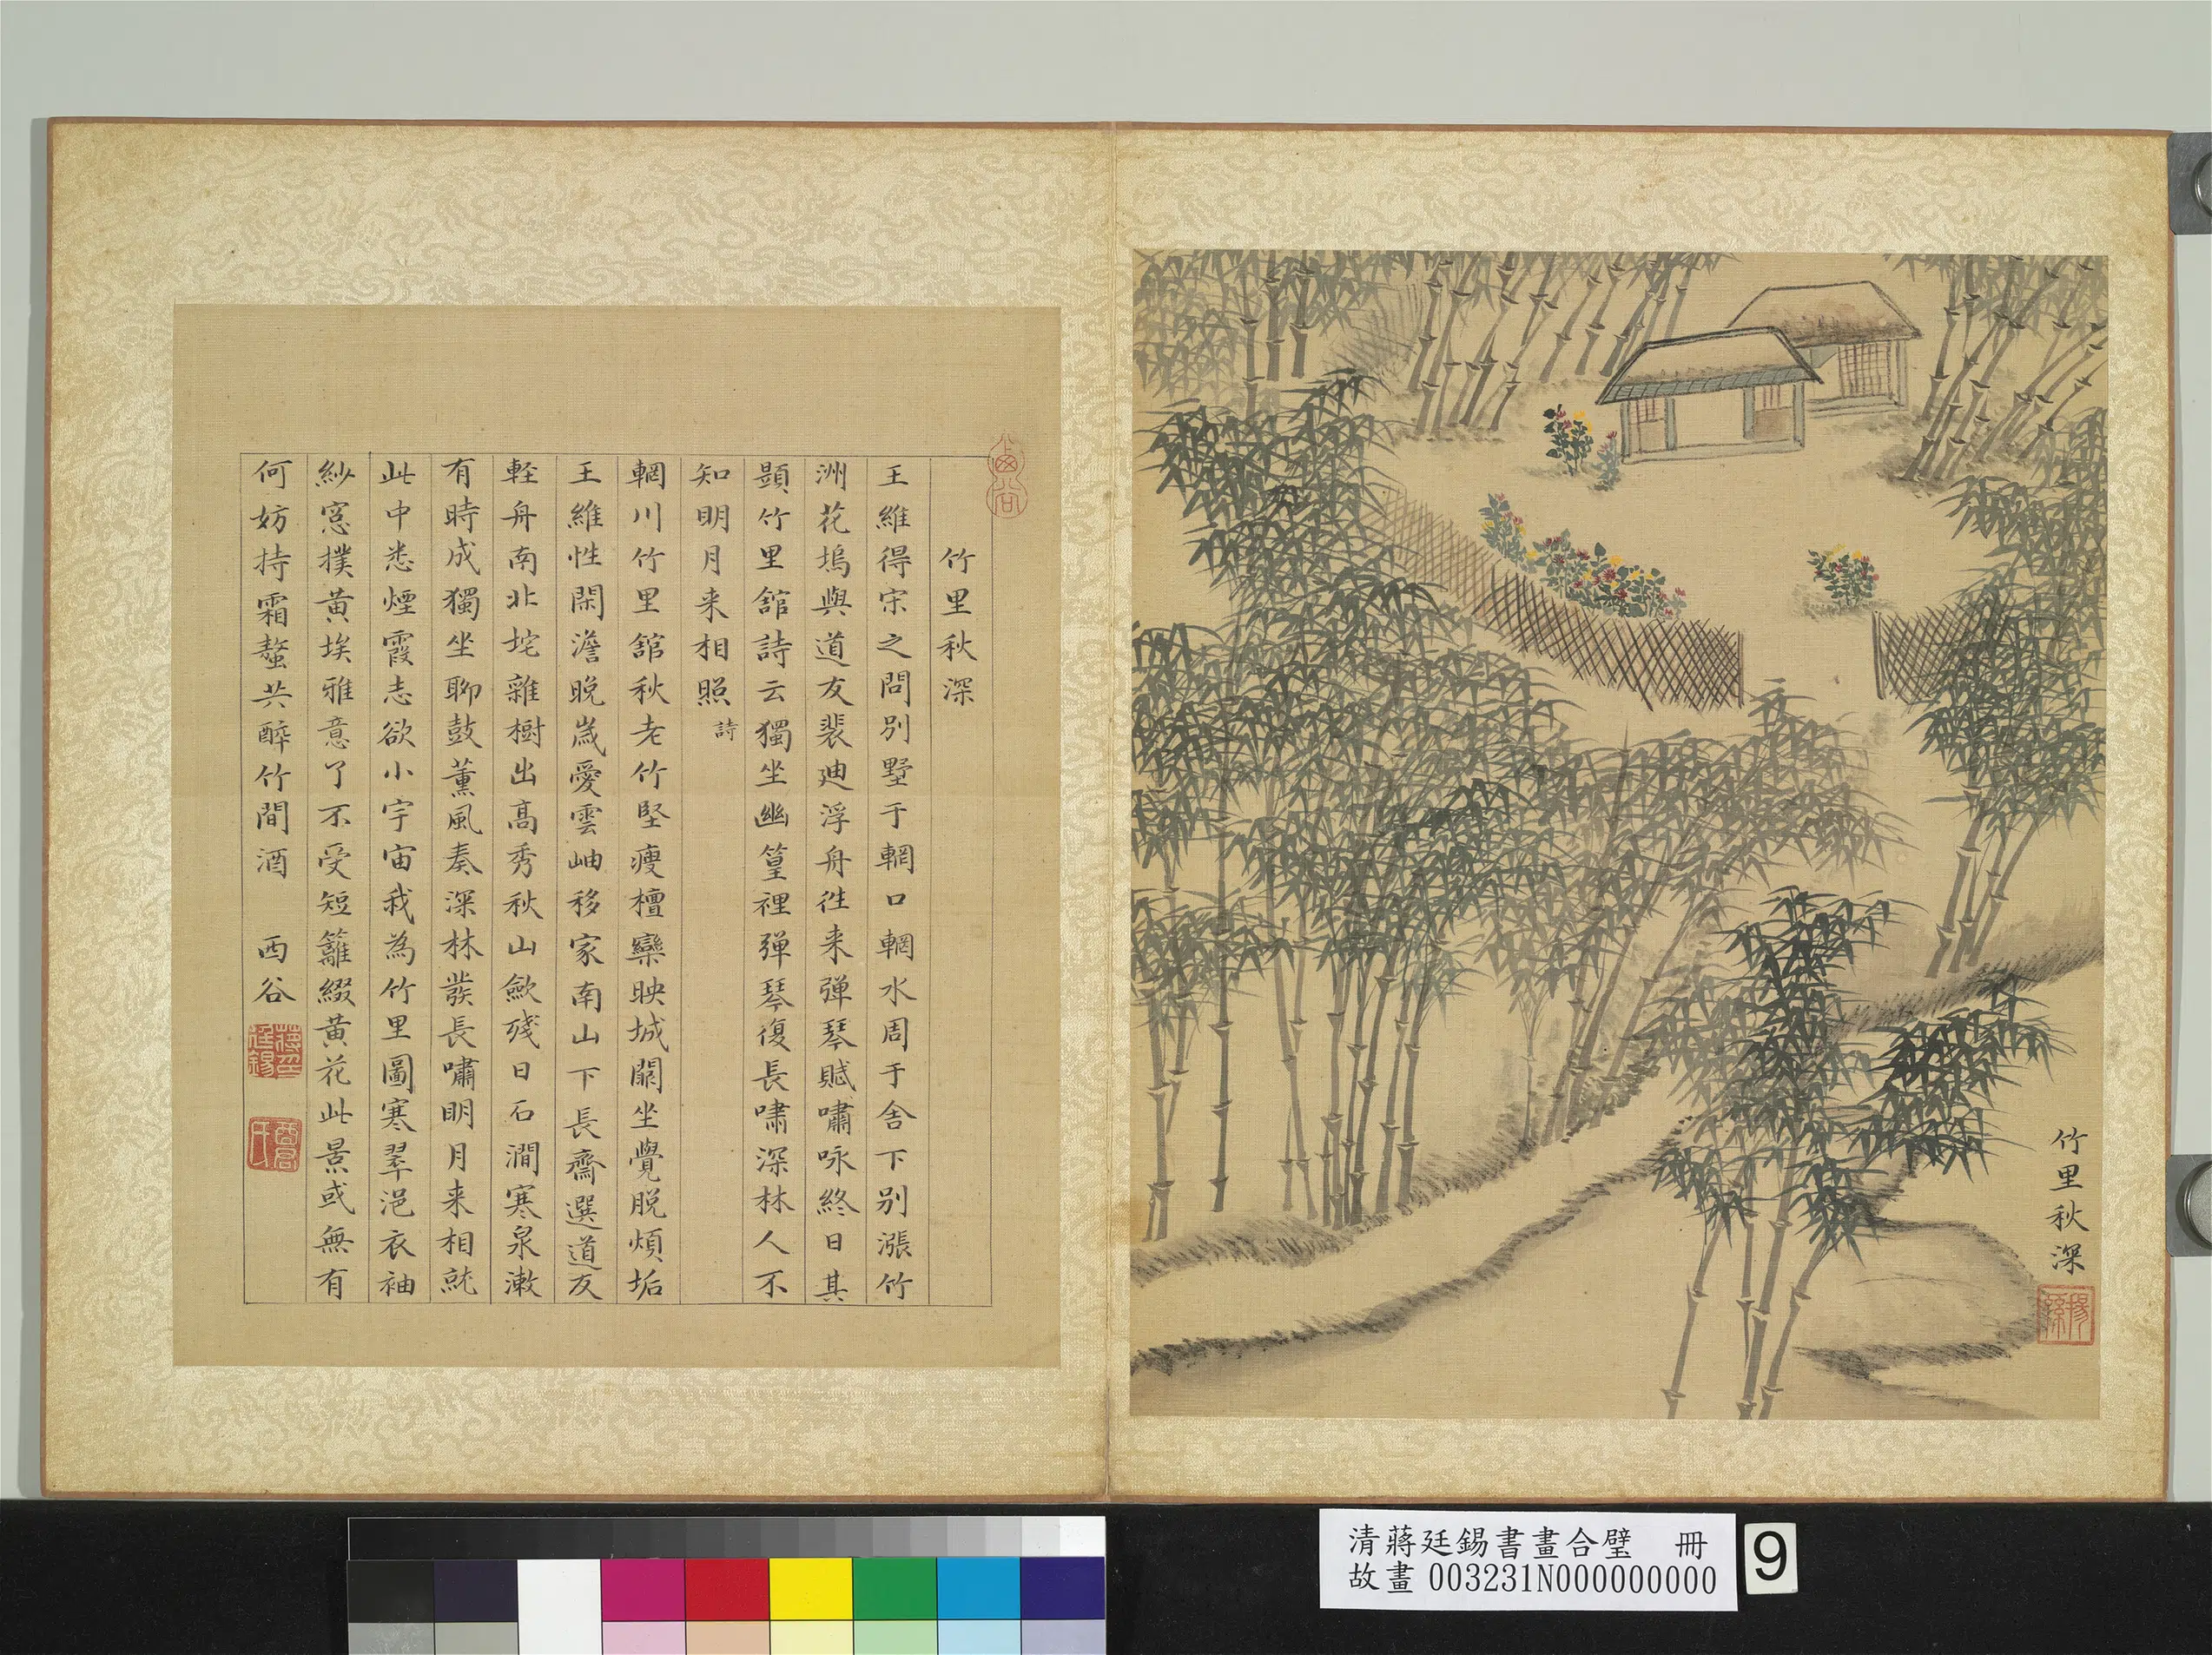 竹里秋深
竹里秋深
王維得宋之問別墅于輞口輞水周于舍下別漲竹
洲花塢與道友裴迪浮舟往来弹琴賦嘯咏終日其
題竹里舘詩云獨坐幽篁裡弹琴復長嘯深林人不
知明月来相照 詩
輞川竹里舘秋老竹堅瘦檀欒映城闕坐覺脱煩垢
王維性閑澹晚歲愛雲岫移家南山下長齋選道友
輕舟南北垞雜樹出高秀秋山歛殘日石澗寒泉漱
有時成獨坐聊鼓薰風奏深林發長嘯明月来相就
此中悉煙霞志欲小宇宙我為竹里圖寒翠浥衣袖
紗窓撲黃埃雅意了不受短籬綴黃花此景或無有
何妨持霜螯共醉竹間酒 酉谷
蔣廷錫印
酉君氏
揚孫
清蔣廷錫書畫合璧 冊
故畫 003231N000000000
9